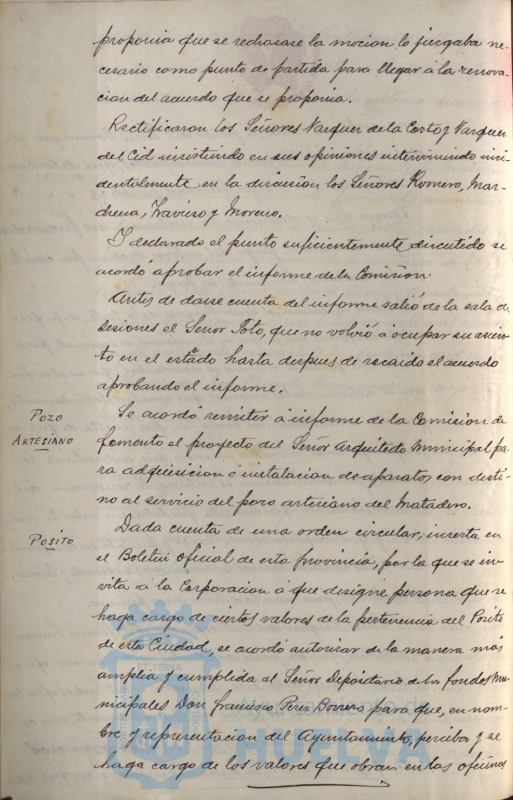 proponia que se rechasase la mocion lo juzgaba ne-
cesario como punto de partida para llegar á la renova-
cion del acuerdo que se proponia.
Rectificaron los Señores Vazquez de la Corte y Vazquez
del Cid insistiendo en sus opiniones interviniendo inci-
dentalmente en la discusion los Señores Romero, Mar-
chena, Traviero y Moreno.
I declarado el punto suficientemente discutido se
acordó aprobar el informe de la Comision
Antes de darse cuenta del informe salió de la sala de
Sesiones el Señor Toto, que no volvió á ocupar su asien-
to en el estrado hasta despues de recaido el acuerdo
aprobando el informe.
POZO
ARTESIANO
Se acordó remitir á informe de la Comision de
fomento el proyecto del Señor Arquitecto Municipal pa-
ra adquisicion é instalacion de aparatos con desti-
no al servicio del pozo artesiano del Matadero.
POSITO
Dada cuenta de una orden circular, inserta en
el Boletin Oficial de esta Provincia, por la que se in-
vita á la Corporacion á que designe persona que se
haga cargo de ciertos valores de la pertenencia del Posito
de esta Ciudad, se acordó autorizar de la manera mas
amplia y cumplida al Señor Depositario de los fondos Mu-
nicipales Don Francisco Perez Borrero para que, en nom-
bre y representacion del Ayuntamiento, perciba y se
haga cargo de los valores que obran en las oficinas
HUELVA